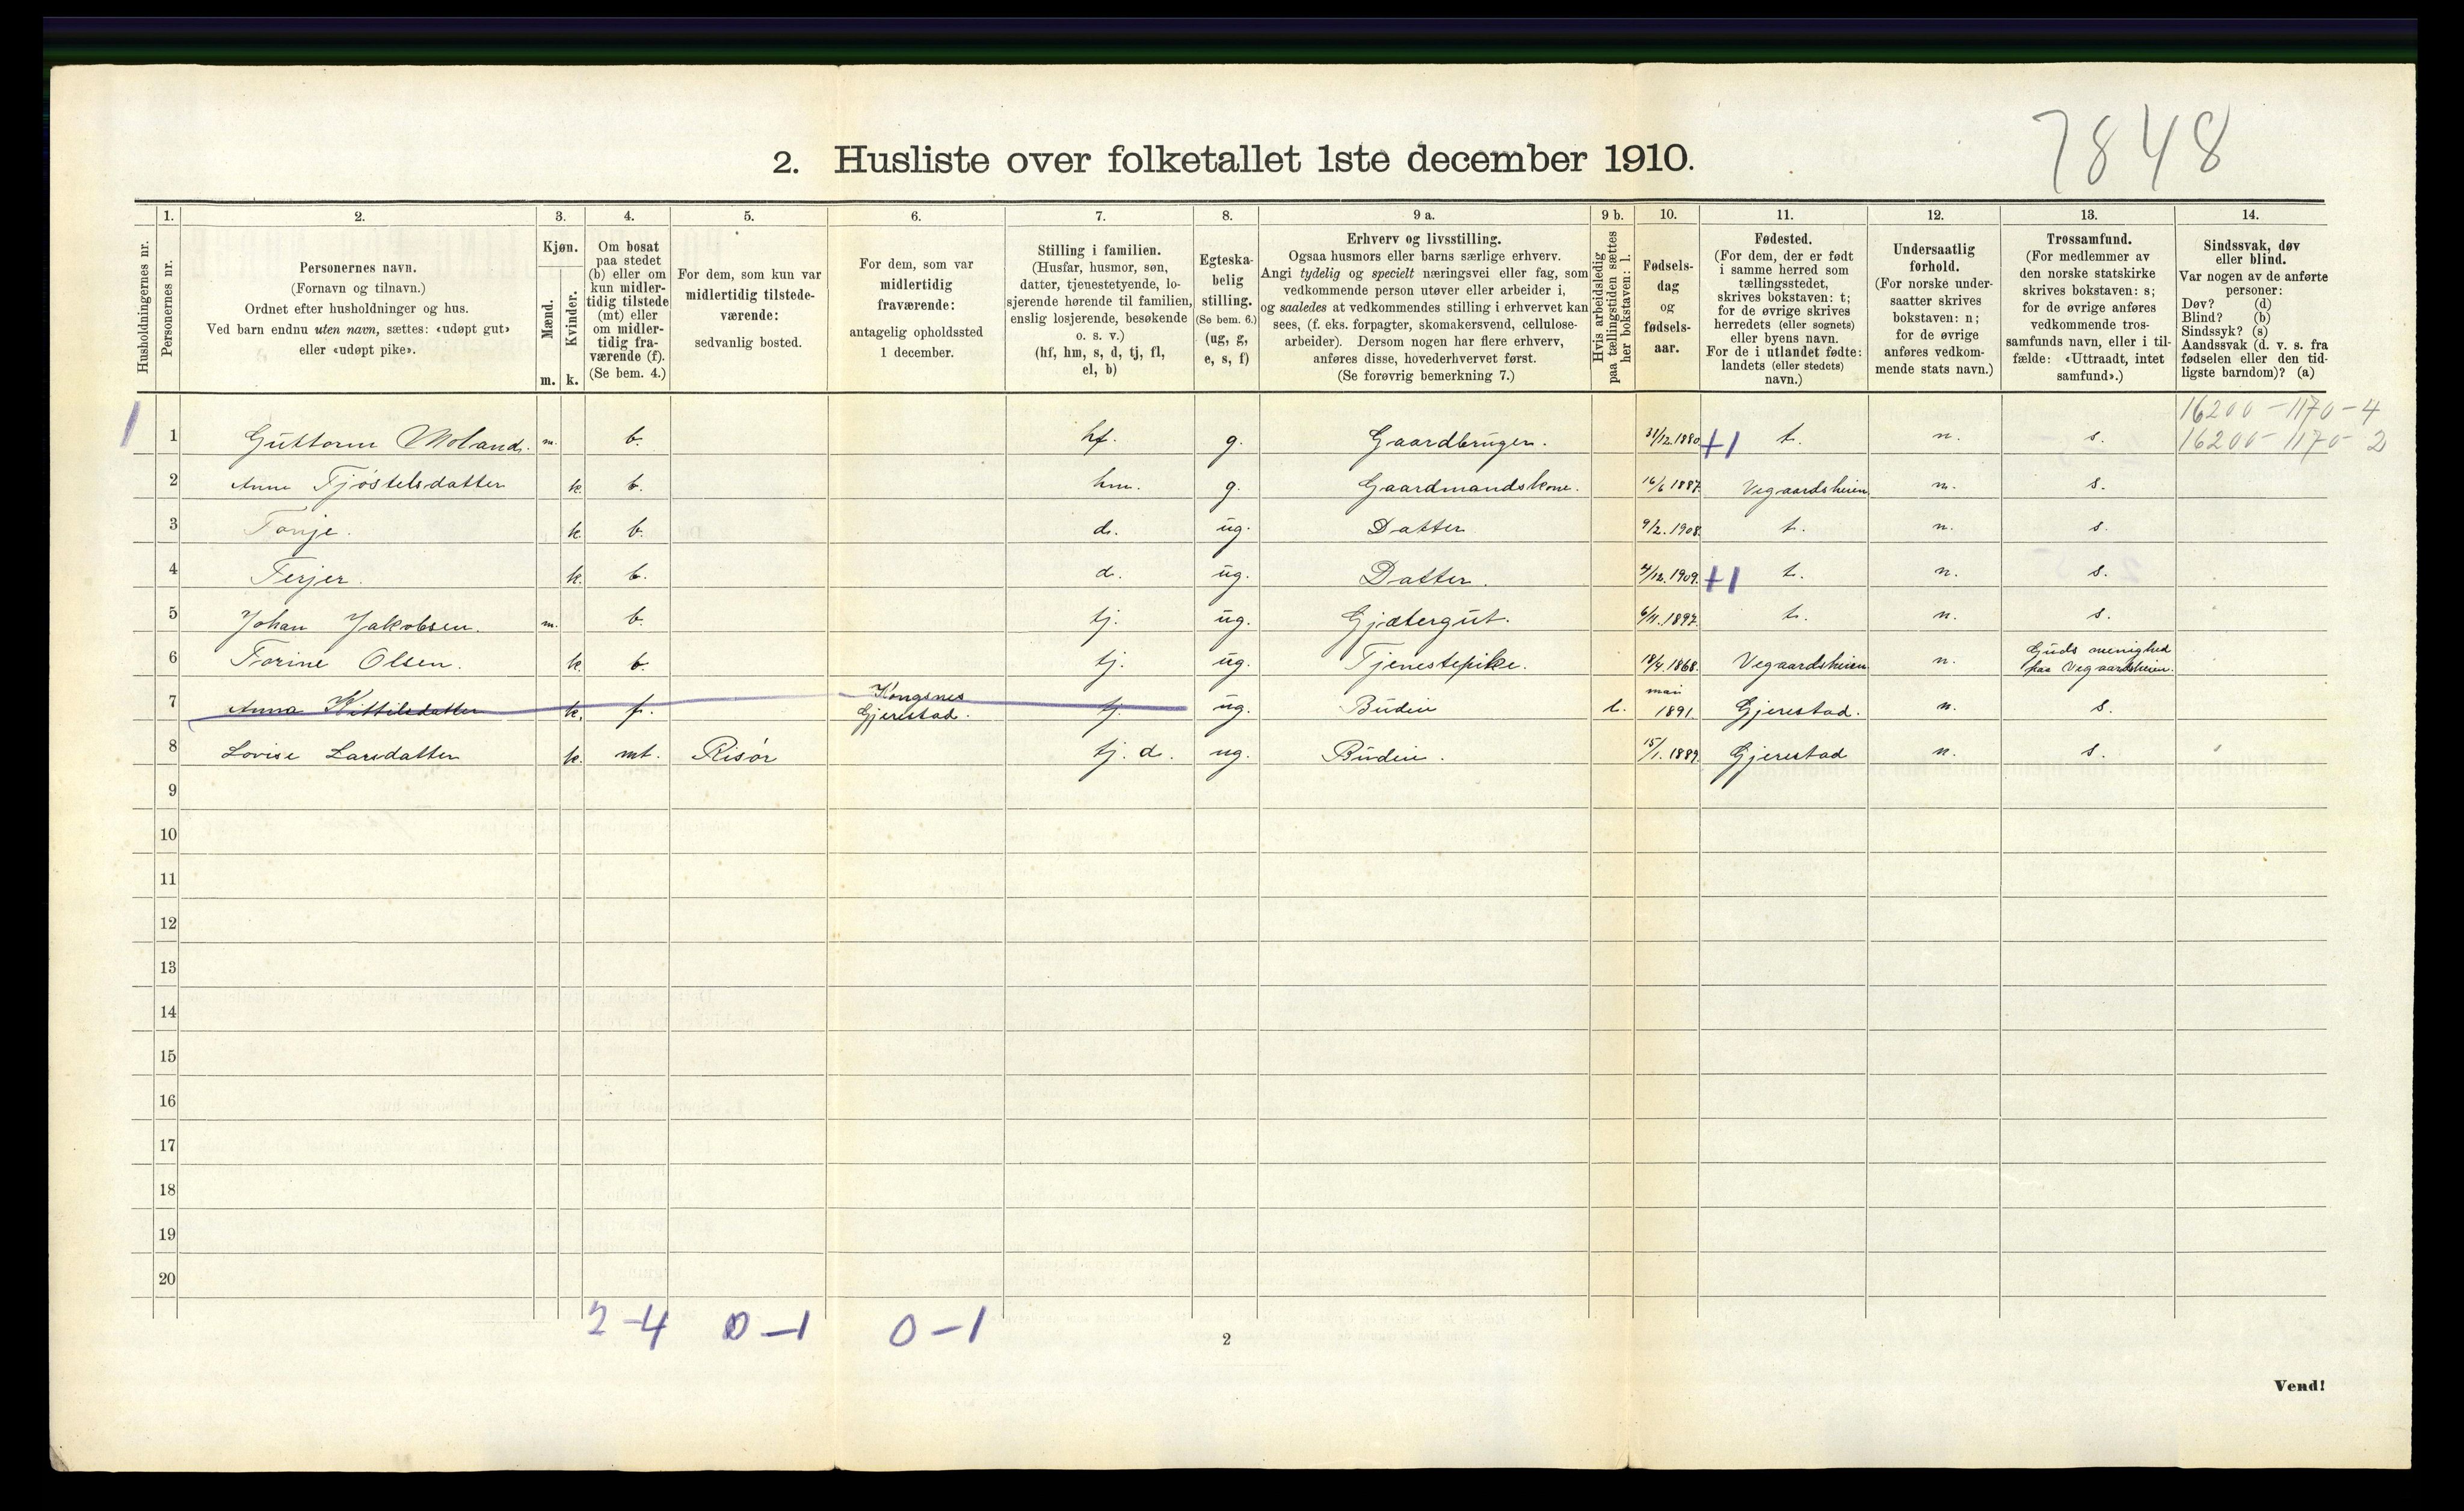 7848
2. Husliste over folketallet 1ste december 1910.
Husholdningernes nr.
1.
Personernes nr.
2.
Personernes navn.
(Fornavn og tilnavn.)
Ordnet efter husholdninger og hus.
Ved barn endnu uten navn, sættes: «udøpt gut»
eller «udøpt pike».
3.
Kjøn.
Mænd.
Kvinder.
m. k.
4.
Om bosat
paa stedet
(b) eller om
kun midler-
tidig tilstede
(mt) eller
om midler-
tidig fra-
værende (f).
(Se bem. 4.)
5.
For dem, som kun var
midlertidig tilstede-
værende:
sedvanlig bosted.
6.
For dem, som var
midlertidig
fraværende:
antagelig opholdssted
1 december.
7.
Stilling i familien.
(Husfar, husmor, søn,
datter, tjenestetyende, lo-
sjerende hørende til familien,
enslig losjerende, besøkende
o. s. v.)
(hf, hm, s, d, tj, fl,
el, b)
8.
Egteska-
belig
stilling.
(Se bem. 6.)
(ug, g,
e, s, f)
9 a.
Erhverv og livsstilling.
Ogsaa husmors eller barns særlige erhverv.
Angi tydelig og specielt næringsvei eller fag, som
vedkommende person utøver eller arbeider i,
og saaledes at vedkommendes stilling i erhvervet kan
sees, (f. eks. forpagter, skomakersvend, cellulose-
arbeider). Dersom nogen har flere erhverv,
anføres disse, hovederhvervet først.
(Se forøvrig bemerkning 7.)
9 b.
Hvis arbeidsledig
paa tællingstiden sættes
her bokstaven: l.
10.
Fødsels-
dag
og
fødsels-
aar.
11.
Fødested.
(For dem, der er født
i samme herred som
tællingsstedet,
skrives bokstaven: t;
for de øvrige skrives
herredets (eller sognets)
eller byens navn.
For de i utlandet fødte:
landets (eller stedets)
navn.)
12.
Undersaatlig
forhold.
(For norske under-
saatter skrives
bokstaven: n;
for de øvrige
anføres vedkom-
mende stats navn.)
13.
Trossamfund.
(For medlemmer av
den norske statskirke
skrives bokstaven: s;
for de øvrige anføres
vedkommende tros-
samfunds navn, eller i til-
fælde: «Uttraadt, intet
samfund».)
14.
Sindssvak, døv
eller blind.
Var nogen av de anførte
personer:
Døv? (d)
Blind? (b)
Sindssyk? (s)
Aandssvak (d. v. s. fra
fødselen eller den tid-
ligste barndom)? (a)
16200 - 1170 - 4
1 1 Guttorm Moland. m. b. hf. g. Gaardbruger. 31/12.1880 +1 t. n. s. 16200 - 1170 - 2
2 Anne Tjøstelsdatter k. b. hm. g. Gaardmandskone. 16/6 1887. Vegaardsheien n. s.
3 Tonje. k. b. d. ug. Datter 9/2.1908. t. n. s.
4 Terjer. k. b. d. ug. Datter. 4/12.1909. +1 t. n. s.
5 Johan Jakobsen. m. b. tj. ug. Gjætergut. 6/11.1897. t. n. s.
6 Torine Olsen. k. b. tj. ug. Tjenestepike. 18/4.1868. Vegaardsheien n. Guds menighed
paa Vegaardsheien.
7 Anna Kittilsdatter k. f. Kongsnes
Gjerestad. tj. ug. Budeie l. mai
1891. Gjerestad. n. s.
8 Lovise Larsdatter k. mt. Risør tj. d. ug. Budeie. 15/1.1889. Gjerestad n. s.
9
10
11
12
13
14
15
16
17
18
19
20
2-4 0-1 0-1
2
Vend!